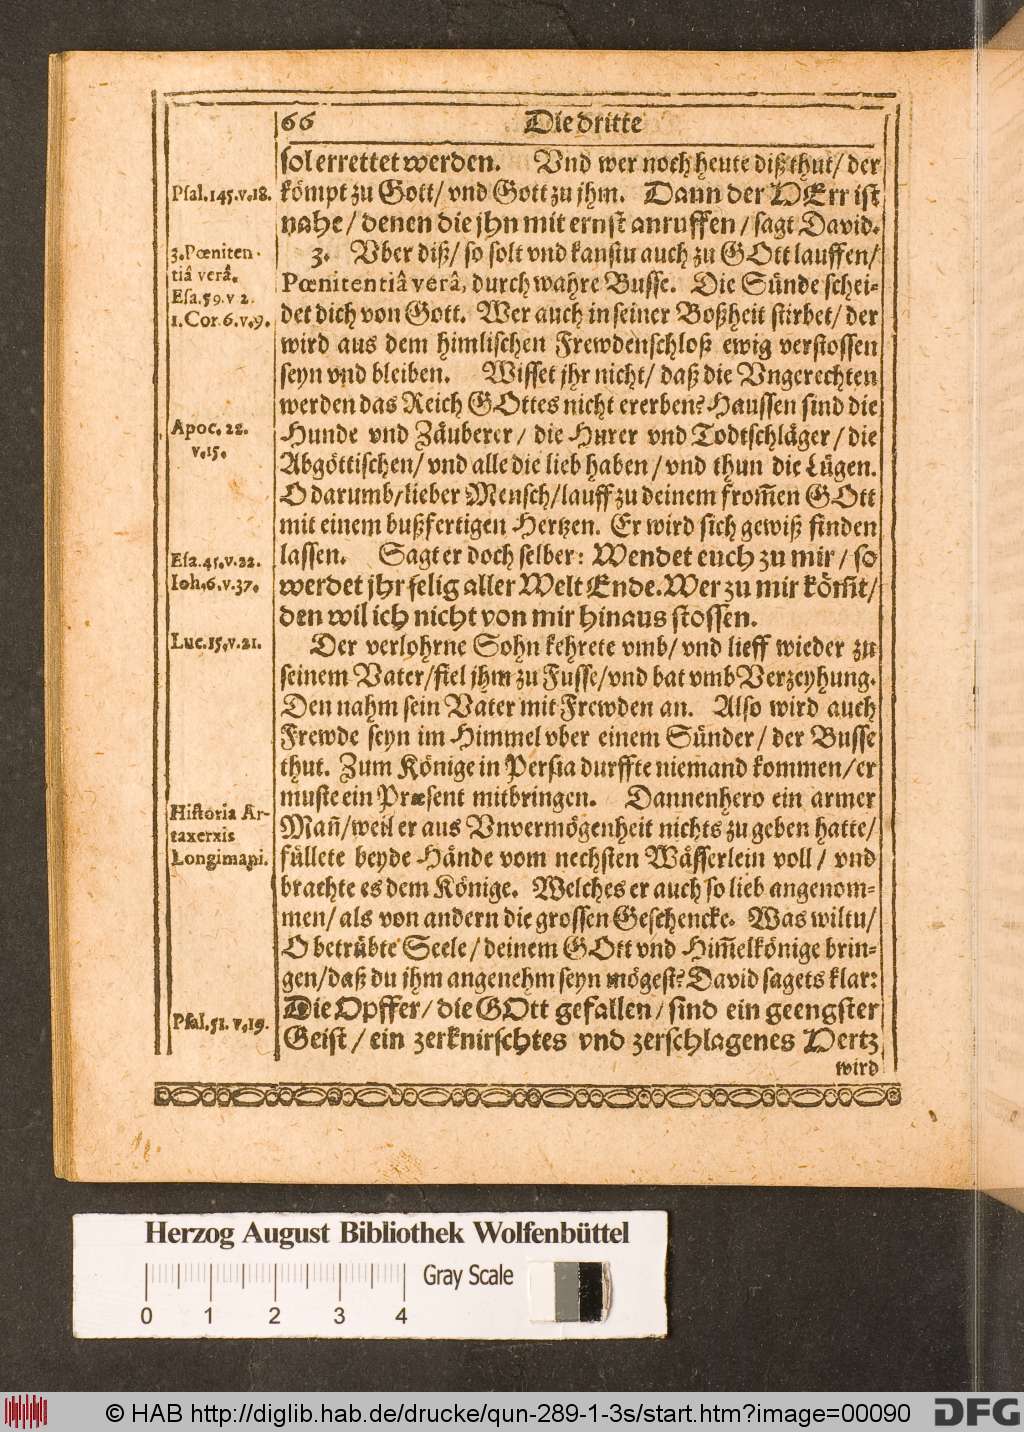 66 Die dritte
sol errettet werden. Vnd wer noch heute diß thut/ der
Psal.145.v.18.
kömpt zu Gott/ vnd Gott zu jhm. Dann der HErr ist
nahe/ denen die jhn mit ernst anruffen/ sagt David.
3.Pœniten-
tiâ verâ.
Esa.59.v 2.
1.Cor.6.v.9.
3. Vber diß/ so solt vnd kanstu auch zu GOtt lauffen/
Pœnitentiâ verâ, durch wahre Busse. Die Sünde schei-
det dich von Gott. Wer auch in seiner Boßheit stirbet/ der
wird aus dem himlischen Frewdenschloß ewig verstossen
seyn vnd bleiben. Wisset jhr nicht/ daß die Vngerechten
werden das Reich GOttes nicht ererben? Haussen sind die
Apoc. 22.
v.15.
Hunde vnd Zäuberer/ die Hurer vnd Todtschläger/ die
Abgöttischen/ vnd alle die lieb haben/ vnd thun die Lügen.
O darumb/ lieber Mensch/ lauff zu deinem from̃en GOtt
mit einem bußfertigen Hertzen. Er wird sich gewiß finden
Esa.45.v.22.
Ioh.6.v.37.
lassen. Sagt er doch selber: Wendet euch zu mir/ so
werdet jhr selig aller Welt Ende. Wer zu mir köm̃t/
den wil ich nicht von mir hinaus stossen.
Luc.15.v.21.
Der verlohrne Sohn kehrete vmb/ vnd lieff wieder zu
seinem Vater/ fiel jhm zu Fusse/ vnd bat vmb Verzeyhung.
Den nahm sein Vater mit Frewden an. Also wird auch
Frewde seyn im Himmel vber einem Sünder/ der Busse
thut. Zum Könige in Persia durffte niemand kommen/ er
muste ein Præsent mitbringen. Dannenhero ein armer
Historia Ar-
taxerxis
Longimani.
Mañ/ weil er aus Vnvermögenheit nichts zu geben hatte/
füllete beyde Hände vom nechsten Wässerlein voll/ vnd
brachte es dem Könige. Welches er auch so lieb angenom-
men/ als von andern die grossen Geschencke. Was wiltu/
O betrübte Seele/ deinem GOtt vnd Him̃elkönige brin-
gen/ daß du jhm angenehm seyn mögest? David sagets klar:
Psal.51.v.19.
Die Opffer/ die GOtt gefallen/ sind ein geengster
Geist/ ein zerknirschtes vnd zerschlagenes Hertz
wird
Herzog August Bibliothek Wolfenbüttel
Gray Scale
0 1 2 3 4
© HAB http://diglib.hab.de/drucke/qun-289-1-3s/start.htm?image=00090
DFG